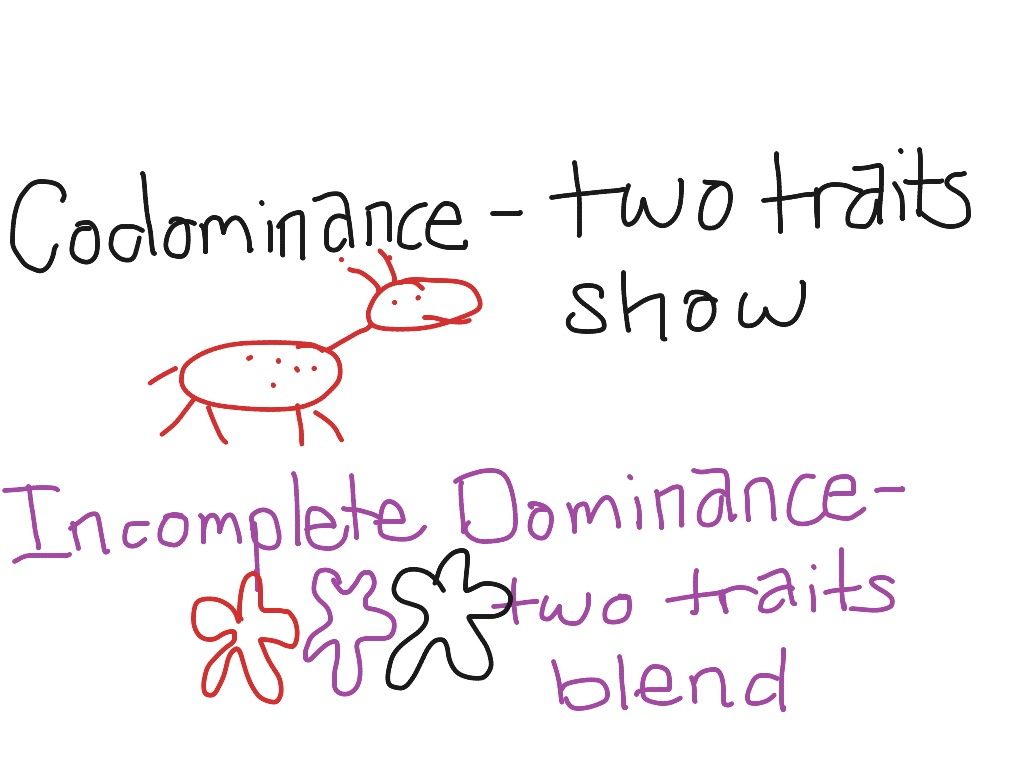 Codominance - two traits
show
Incomplete Dominance-
two traits
blend